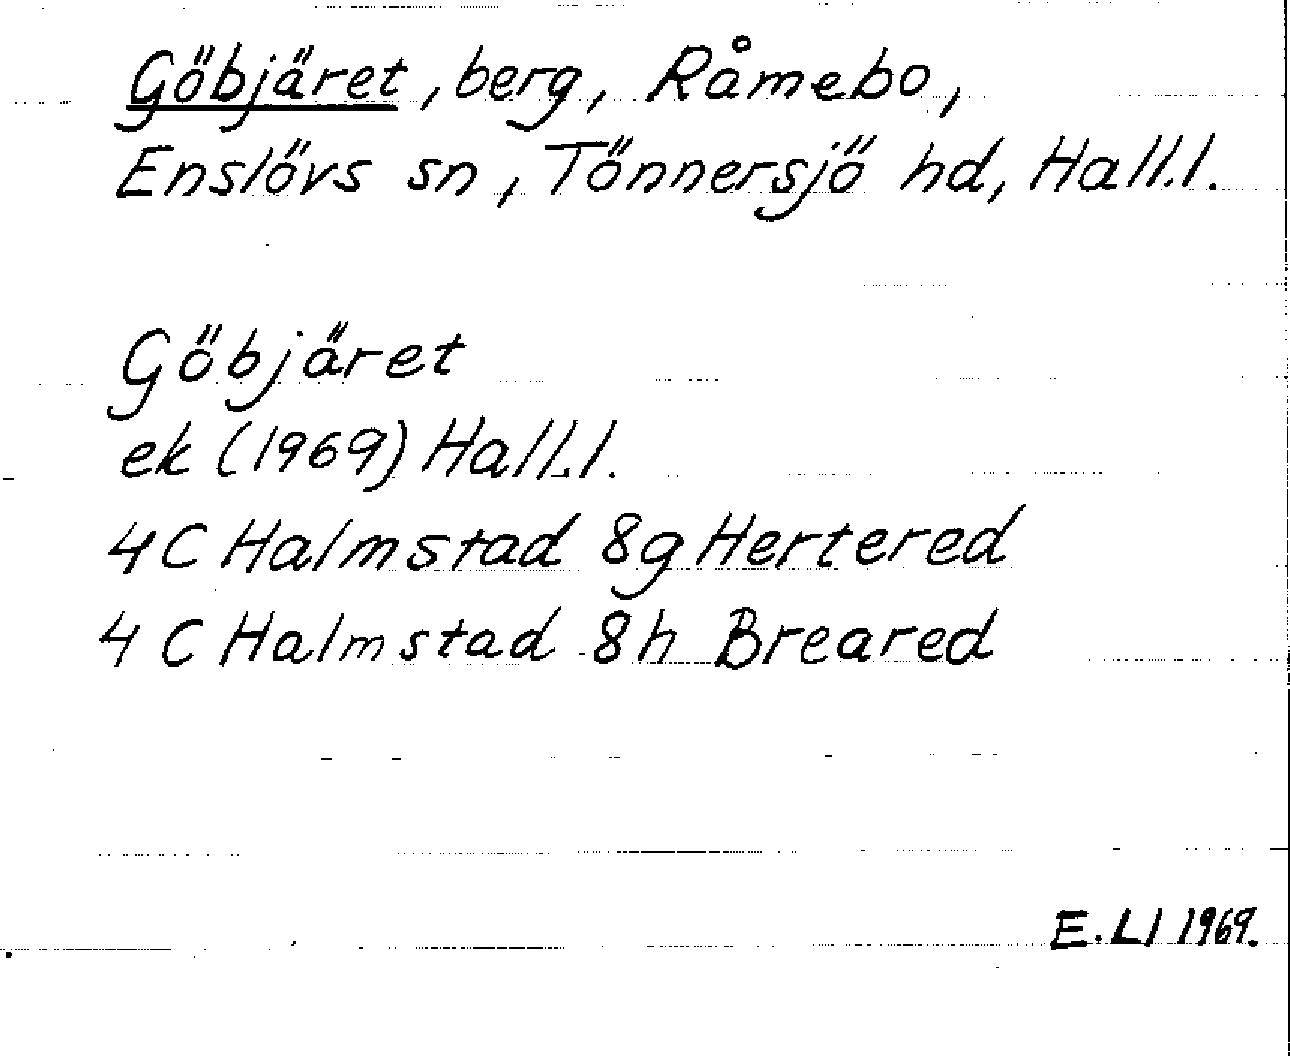 Göbjäret, berg, Råmebo,
Enslövs sn, Tönnersjö hd, Hall.l.
Göbjäret
ek (1969) Hall.l.
4 C Halmstad 8g Hertered
4 C Halmstad 8h Breared
E.Ll 1969.